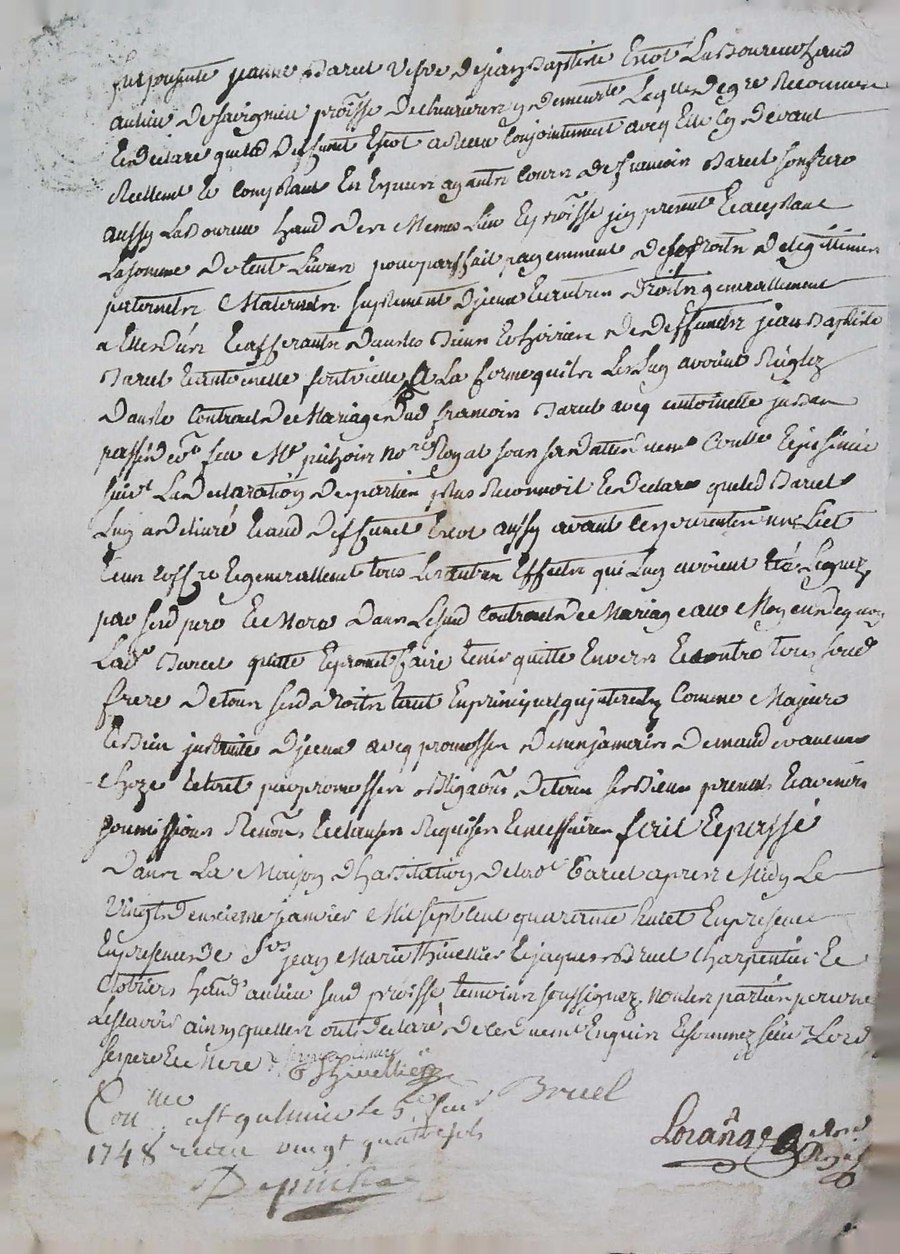 fut presente jeanne Barcet vefve de jean Baptiste Escot Laboureur hand
au lieu de savignieu proisse de demeurte Laqle de gre Reconnois
Et declare que led deffunct Escot a Receu Conjointement avecq Elle Cy devant
Reellement Et Comptant En Especes ayantes Cours de francois Barcet son frere
aussy Laboureur hand den Meme Lieu Et proisse jcy present Et aceptant
La somme de Cent Livres pour parfait payemment de ses droits de legittimes
paternelles Maternelles suplement djceux Et autres droits generallement
a Elle deus Et afferants dans les Biens Et hoiries de deffuncts jean Baptiste
Barcet Et antoinette a La forme quils Les Luy avoient Reglez
dans le Contract de Mariage dud francois Barcet avcq antoinette
passé feu Me pichoin nore Royal sous sa datte
suivt La declaration des parties plus Reconnoit Et declare que led Barcet
Luy a delivré Et aud deffunct Escot aussy avant Ces presentes un Lict
Et un Coffre Et generallement tous Les autres Effects qui Luy avoient été Leguez
par sesd pere Et Mere dans Le susd Contract de Mariage au Moyen dequoy
Lade Barcet quitte Et promet faire tenir quitte Envers Et Contre tous sond
frere de tous sesd droits tant En principal qujnterests Comme Majeure
Et Bien justruite djceux avcq promesses de nen jamais Demander aucune
Choze Le tout par promesses obligaons de tous ses Biens presents Et avenirs
soumissions Renons Et clauses Requises Et necessaires fait Et passé
dans La Maison dhabitation de lad Barcet apres Midy Le
vingt deuxieme janvier Mil sept Cent quarante huict En presence
En presence de Srs jean Marie Thivellier Et jaques Bruel Charpentier Et
Clotrier hands au lieu susd proisse temoins soussignez non les parties pour ne
Le scavoir ainsy quelles ont declaré de Ce duement Enquis Et sommez
ses pere Et Mere
Thivellier
Bruel
Conlle a st galmier le 5e feur
1748 receu vingt quatre sols
Loranã nore Royal
Depuitha